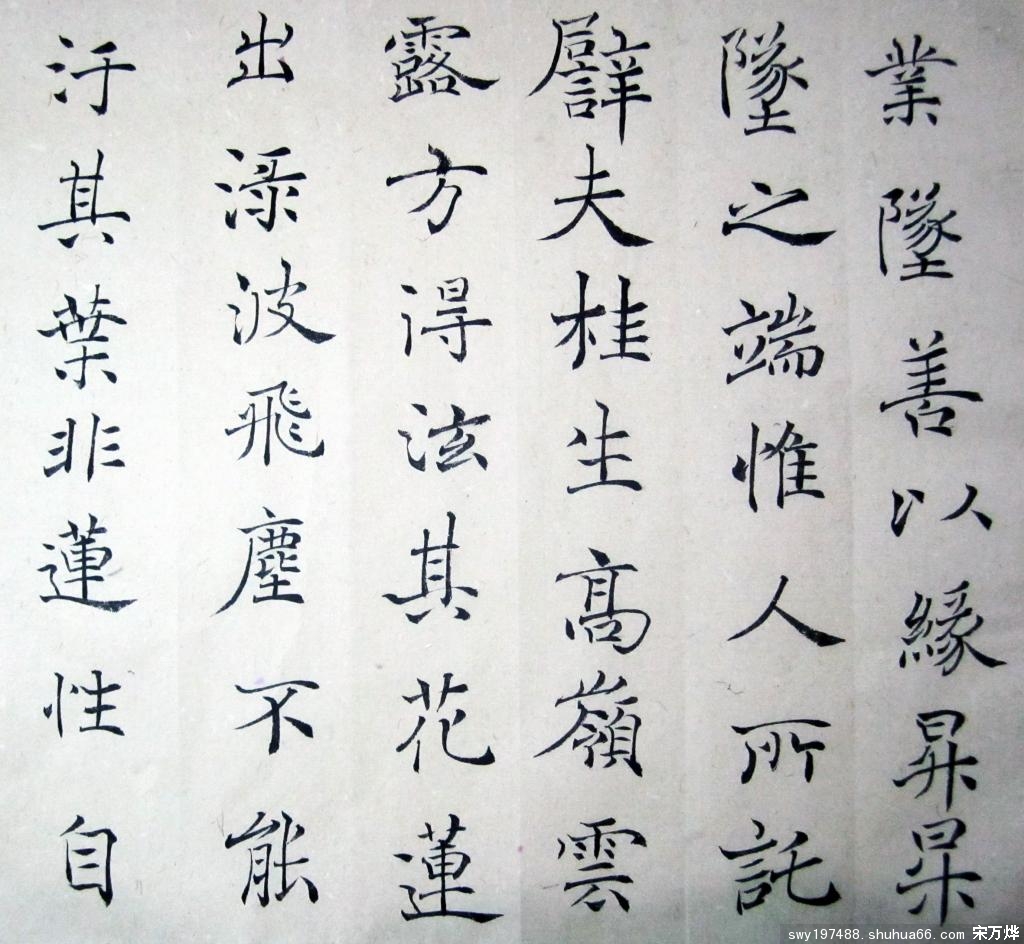 業墜善以緣昇昇
墜之端惟人所託
譬夫桂生高嶺雲
露方得泫其花蓮
出淥波飛塵不能
汙其葉非蓮性自
swy197488.shuhua66.com 宋万烨